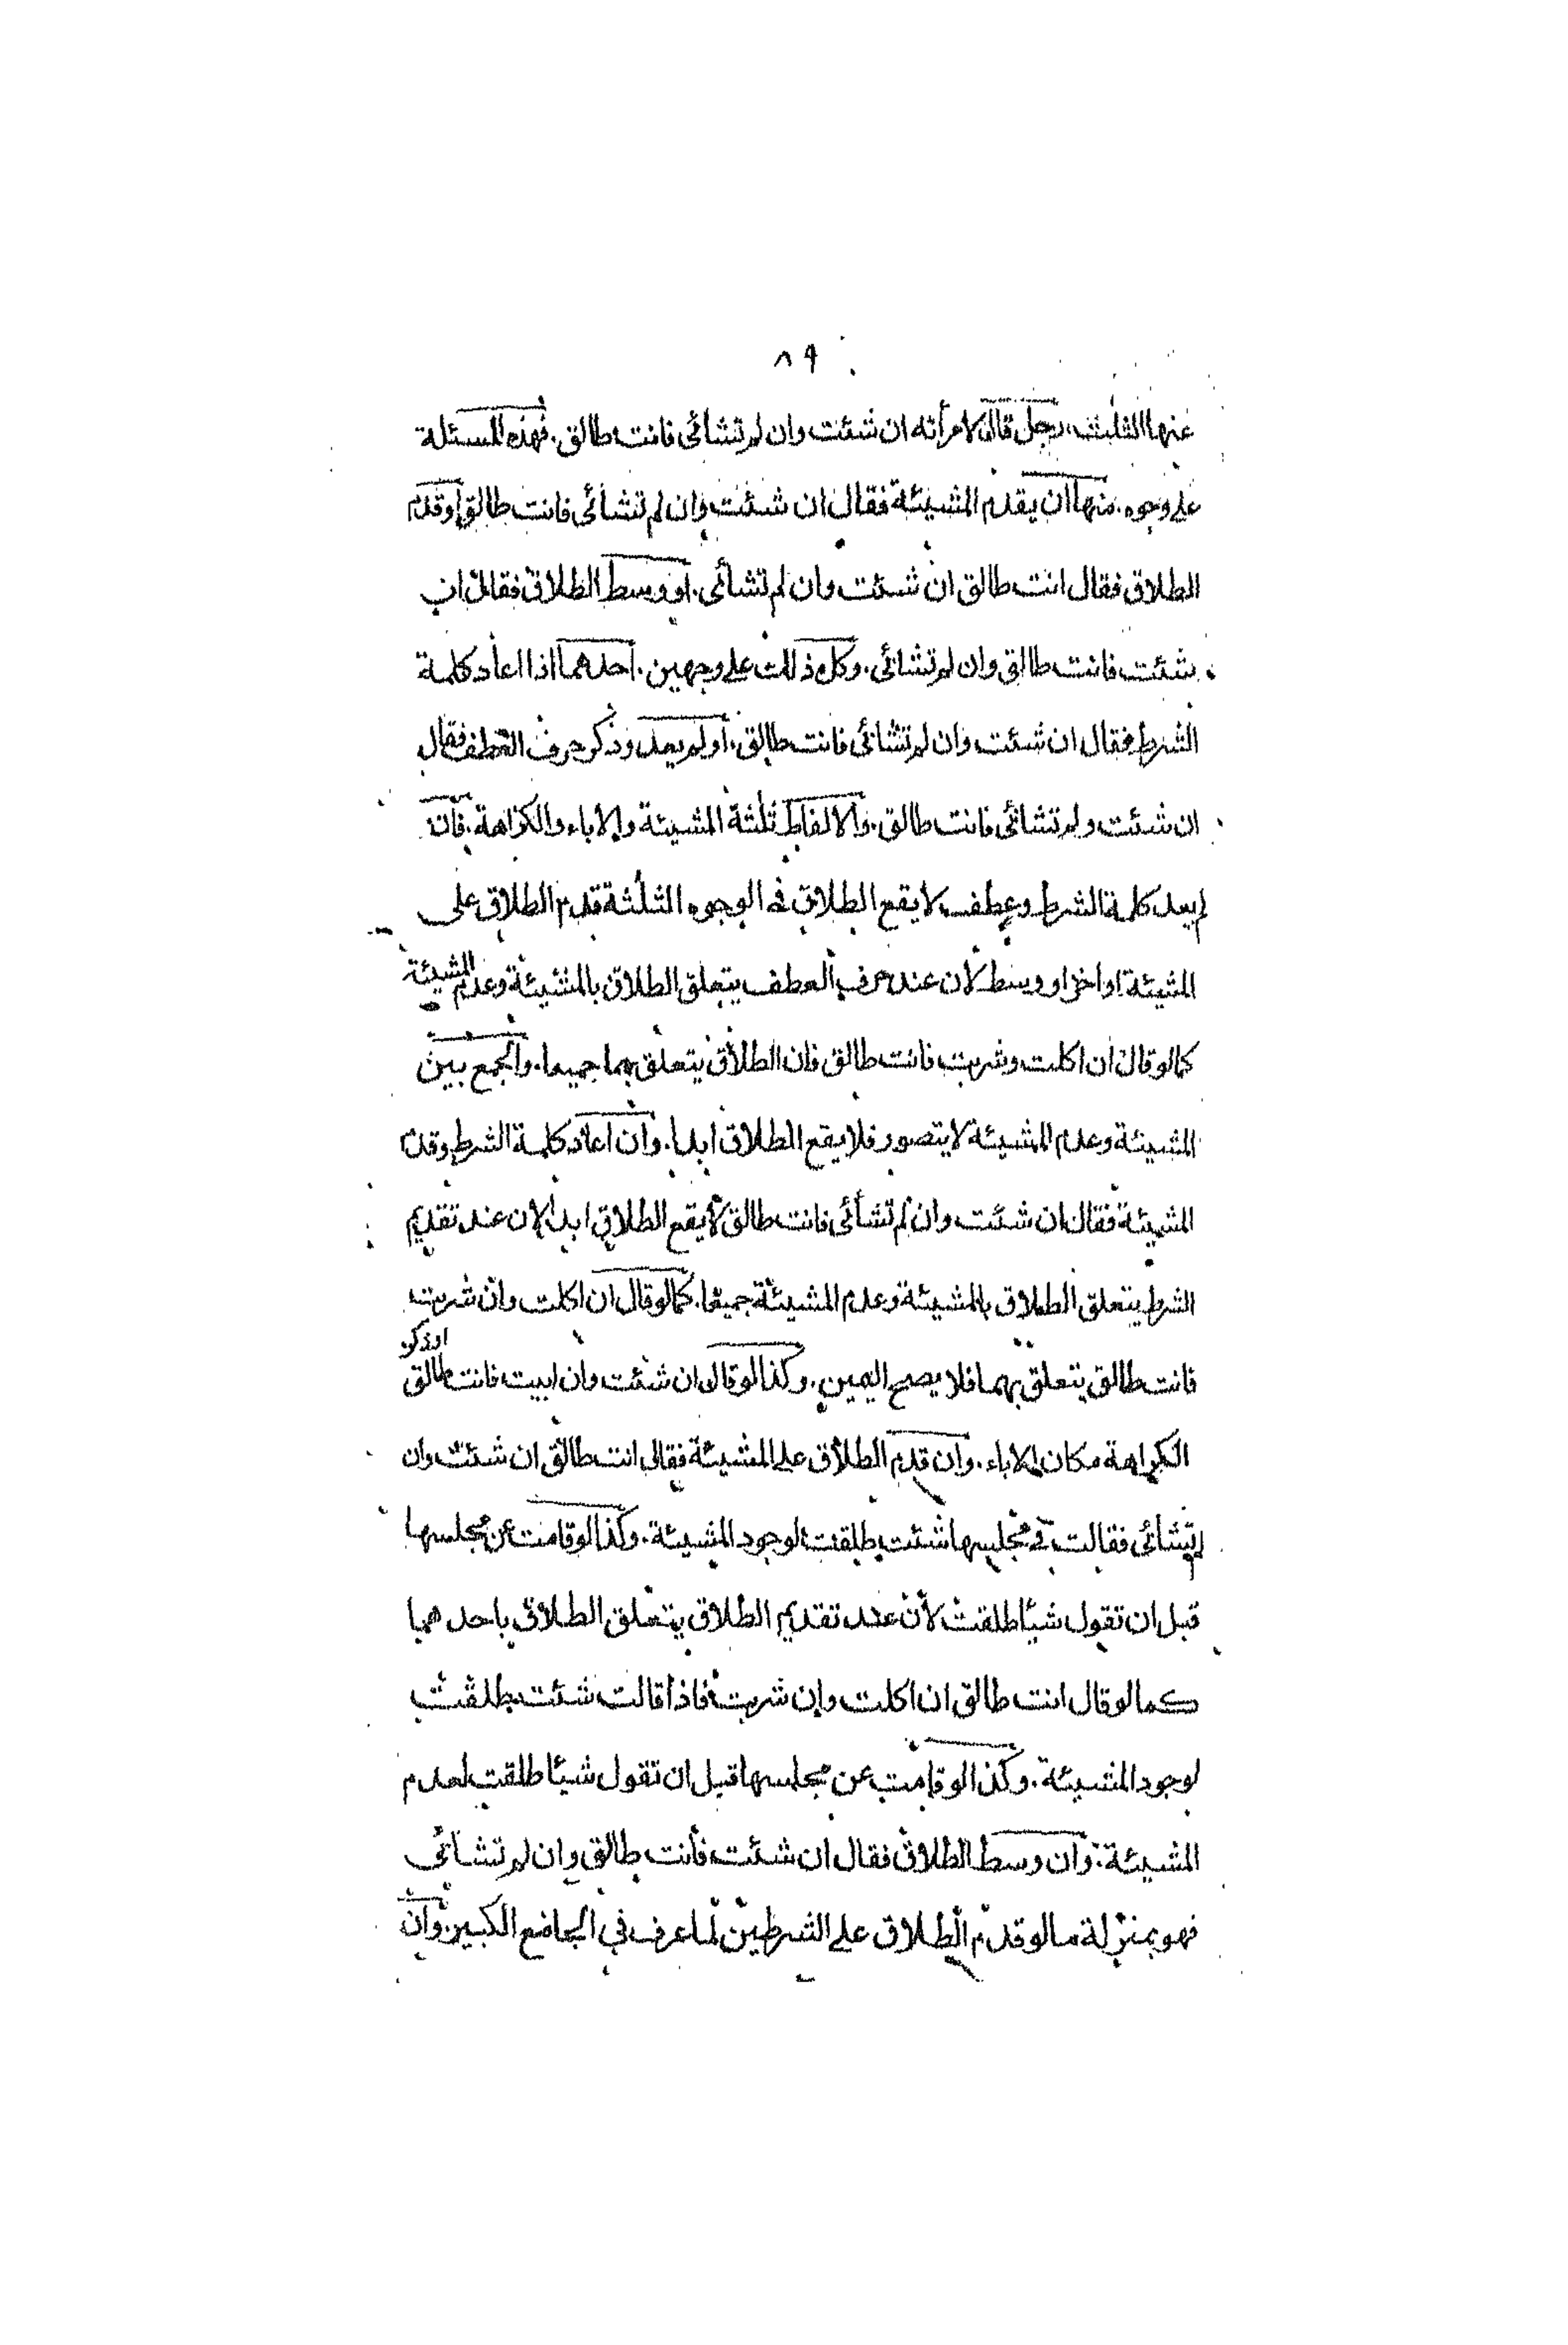 ٨٩
عنها الثلث، رجل قال لامرأته ان شئت وان لم تشائى فانت طالق. فهذه المسئلة
على وجوه. منها ان يقدم المشيئة فقال ان شئت وان لم تشائى فانت طالق او قدم
الطلاق فقال انت طالق ان شئت وان لم تشائى. او وسط الطلاق فقال ان
شئت فانت طالق وان لم تشائى. وكل ذلك على وجهين. احدهما اذا اعاد كلمة
الشرط فقال ان شئت وان لم تشائى فانت طالق. او لم يعد وذكر حرف العطف فقال
ان شئت ولم تشائى فانت طالق. والالفاظ ثلثة المشيئة والاباء والكراهة. فان
لم يعد كلمة الشرط وعطف لا يقع الطلاق فى الوجوه الثلثة قدم الطلاق على
المشيئة او اخر او وسط لان عند حرف العطف يتعلق الطلاق بالمشيئة وعدم المشيئة
كما لو قال ان اكلت وشربت فانت طالق فان الطلاق يتعلق بهما جميعا. والجمع بين
المشيئة وعدم المشيئة لا يتصور فلا يقع الطلاق ابدا. وان اعاد كلمة الشرط وقدم
المشيئة فقال ان شئت وان لم تشائى فانت طالق لا يقع الطلاق ابدا لان عند تقديم
الشرط يتعلق الطلاق بالمشيئة وعدم المشيئة جميعا. كما لو قال ان اكلت وان شربت
فانت طالق يتعلق بهما فلا يصح اليمين. وكذا لو قال ان شئت وان ابيت فانت طالق او ذكر
الكراهة مكان الاباء. وان قدم الطلاق على المشيئة فقال انت طالق ان شئت وان
لم تشائى فقالت فى مجلسها شئت طلقت لوجود المشيئة. وكذا لو قامت عن مجلسها
قبل ان تقول شيئا طلقت لان عند تقديم الطلاق يتعلق الطلاق باحدهما
كما لو قال انت طالق ان اكلت وان شربت فاذا قالت شئت طلقت
لوجود المشيئة. وكذا لو قامت عن مجلسها قبل ان تقول شيئا طلقت لعدم
المشيئة. وان وسط الطلاق فقال ان شئت فانت طالق وان لم تشائى
فهو بمنزلة ما لو قدم الطلاق على الشرطين لما عرف فى الجامع الكبير. وان